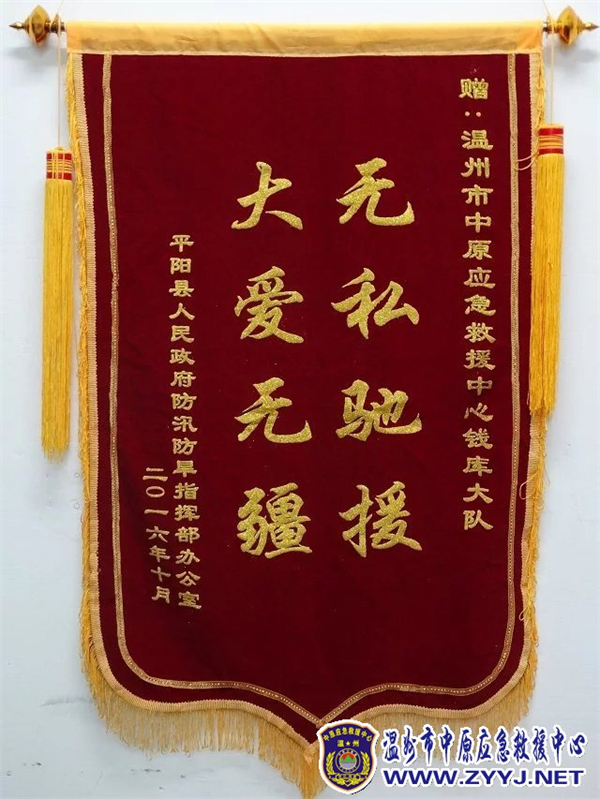 赠：温州市中原应急救援中心钱库大队
无私驰援
大爱无疆
平阳县人民政府防汛防旱指挥部办公室
二〇一六年十月
中原应急救援中心
温★州
温州市中原应急救援中心
WWW.ZYYJ.NET